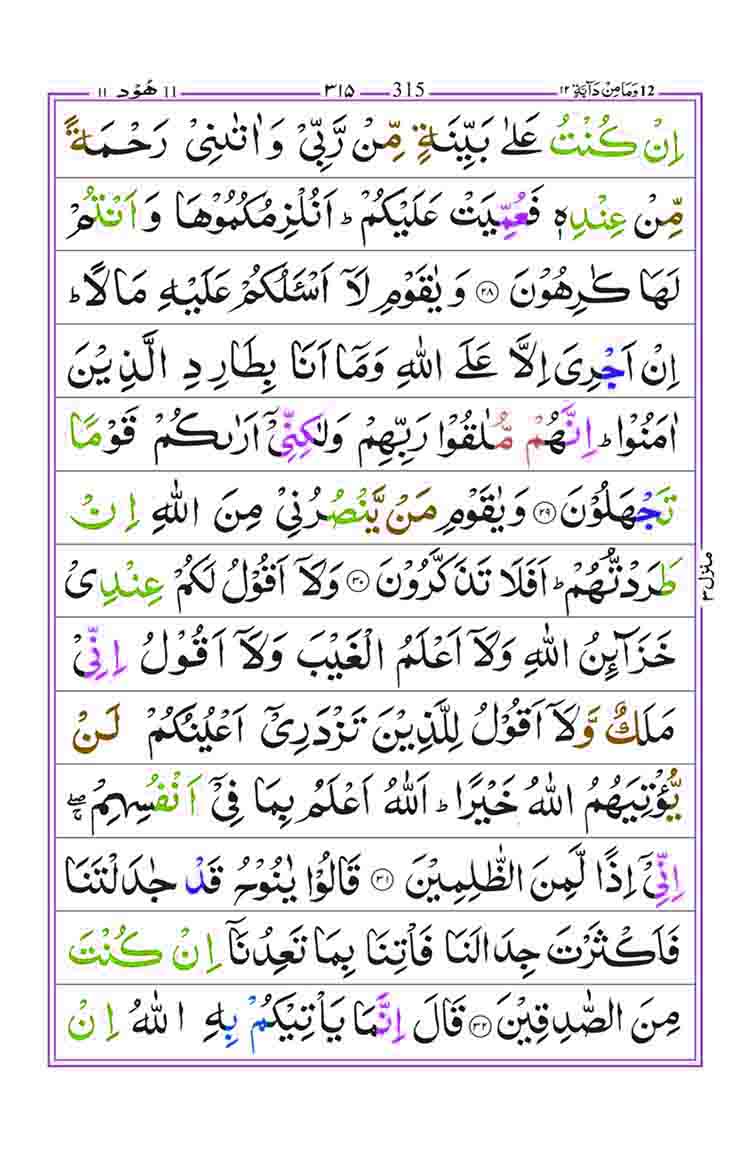 12 وَمَا مِنْ دَآبَّةٍ ١٢ 315 ٣١٥ 11 هُوْد ١١
اِنْ كُنْتُ عَلٰى بَيِّنَةٍ مِّنْ رَّبِّىْ وَاٰتٰىنِىْ رَحْمَةً
مِّنْ عِنْدِهٖ فَعُمِّيَتْ عَلَيْكُمْ ؕ اَنُلْزِمُكُمُوْهَا وَاَنْتُمْ
لَهَا كٰرِهُوْنَ ٢٨ وَيٰقَوْمِ لَاۤ اَسْـَٔلُكُمْ عَلَيْهِ مَالًا ؕ
اِنْ اَجْرِىَ اِلَّا عَلَى اللّٰهِ وَمَاۤ اَنَا بِطَارِدِ الَّذِيْنَ
اٰمَنُوْا ؕ اِنَّهُمْ مُّلٰقُوْا رَبِّهِمْ وَلٰكِنِّىْۤ اَرٰىكُمْ قَوْمًا
تَجْهَلُوْنَ ٢٩ وَيٰقَوْمِ مَنْ يَّنْصُرُنِىْ مِنَ اللّٰهِ اِنْ
طَرَدْتُّهُمْ ؕ اَفَلَا تَذَكَّرُوْنَ ٣٠ وَلَاۤ اَقُوْلُ لَكُمْ عِنْدِىْ
خَزَآئِنُ اللّٰهِ وَلَاۤ اَعْلَمُ الْغَيْبَ وَلَاۤ اَقُوْلُ اِنِّىْ
مَلَكٌ وَّلَاۤ اَقُوْلُ لِلَّذِيْنَ تَزْدَرِىْۤ اَعْيُنُكُمْ لَنْ
يُّؤْتِيَهُمُ اللّٰهُ خَيْرًا ؕ اَللّٰهُ اَعْلَمُ بِمَا فِىْۤ اَنْفُسِهِمْ ۖۚ
اِنِّىْۤ اِذًا لَّمِنَ الظّٰلِمِيْنَ ٣١ قَالُوْا يٰنُوْحُ قَدْ جٰدَلْتَنَا
فَاَكْثَرْتَ جِدَالَنَا فَاْتِنَا بِمَا تَعِدُنَاۤ اِنْ كُنْتَ
مِنَ الصّٰدِقِيْنَ ٣٢ قَالَ اِنَّمَا يَاْتِيْكُمْ بِهِ اللّٰهُ اِنْ
منزل ٣